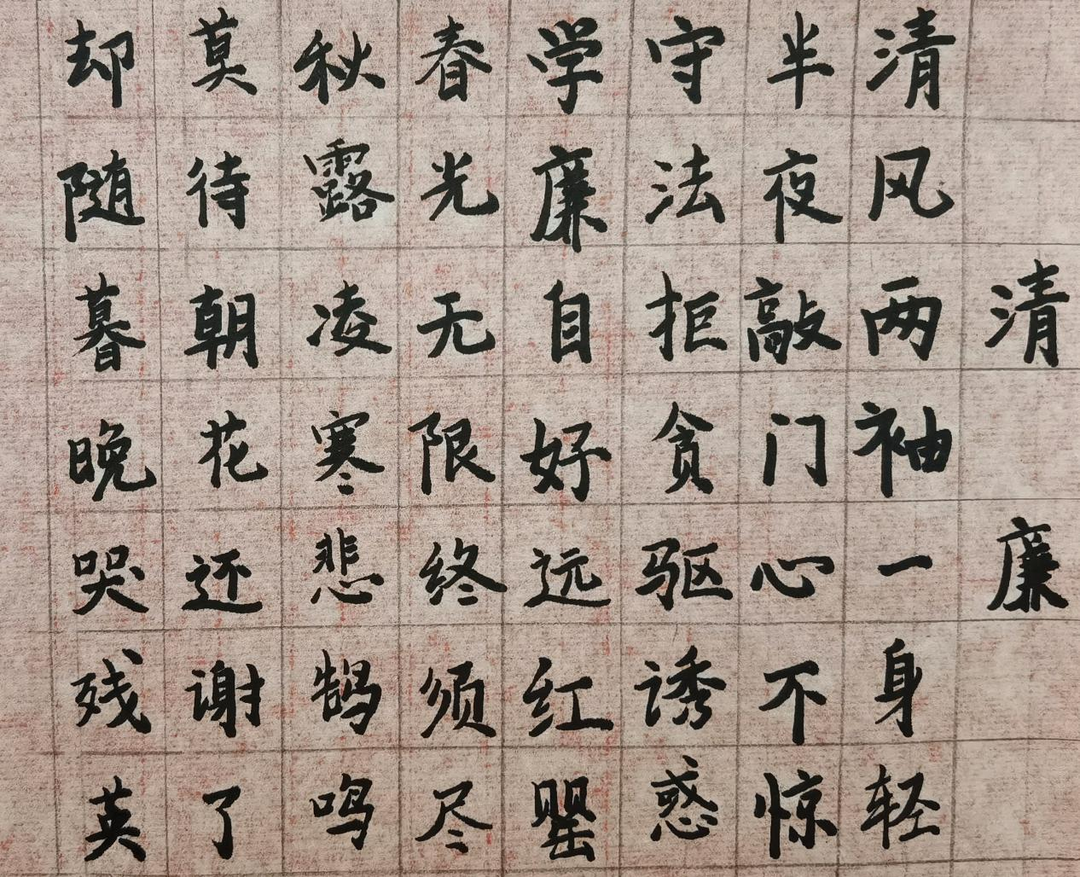 清廉
清风两袖一身轻
半夜敲门心不惊
守法拒贪驱诱惑
学廉自好远红罂
春光无限终须尽
秋露凌寒悲鹄鸣
莫待朝花还谢了
却随暮晚哭残英